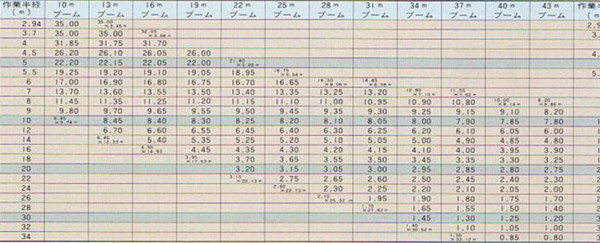 作業半径 10m 13m 16m 19m 22m 25m 28m 31m 34m 37m 40m 43m 作業半
(m) ブーム ブーム ブーム ブーム ブーム ブーム ブーム ブーム ブーム ブーム ブーム ブーム (m)
2.94 35.00
3.7 35.00 35.00
4 31.85 31.75 31.70
4.5 26.20 26.10 26.05 26.00
5 22.20 22.15 22.05 22.00
5.5 19.25 19.20 19.10 19.05 18.95
6 17.00 16.90 16.80 16.75 16.70 16.65
7 13.70 13.60 13.55 13.50 13.40 13.35 13.25 13.20
8 11.45 11.35 11.25 11.20 11.15 11.10 11.00 10.95 10.90 10.80
9 9.80 9.70 9.65 9.55 9.50 9.45 9.35 9.30 9.25 9.15 9.10 8.20
10 8.45 8.40 8.30 8.25 8.20 8.10 8.05 8.00 7.90 7.85 7.80
12 6.70 6.60 6.55 6.45 6.40 6.30 6.25 6.20 6.10 6.05 6.00
14 5.40 5.35 5.25 5.20 5.10 5.05 5.00 4.90 4.85 4.80
16 4.45 4.35 4.30 4.20 4.15 4.10 4.00 3.95 3.90
18 3.70 3.65 3.55 3.50 3.45 3.35 3.30 3.25
20 3.20 3.15 3.05 3.00 2.95 2.85 2.80 2.75
22 2.75 2.65 2.60 2.50 2.45 2.40 2.30
24 2.30 2.25 2.20 2.10 2.05 2.00
26 1.95 1.90 1.80 1.75 1.70
28 1.65 1.55 1.50 1.40
30 1.45 1.30 1.25 1.20
32 1.10 1.05 1.00
34 0.85 0.80